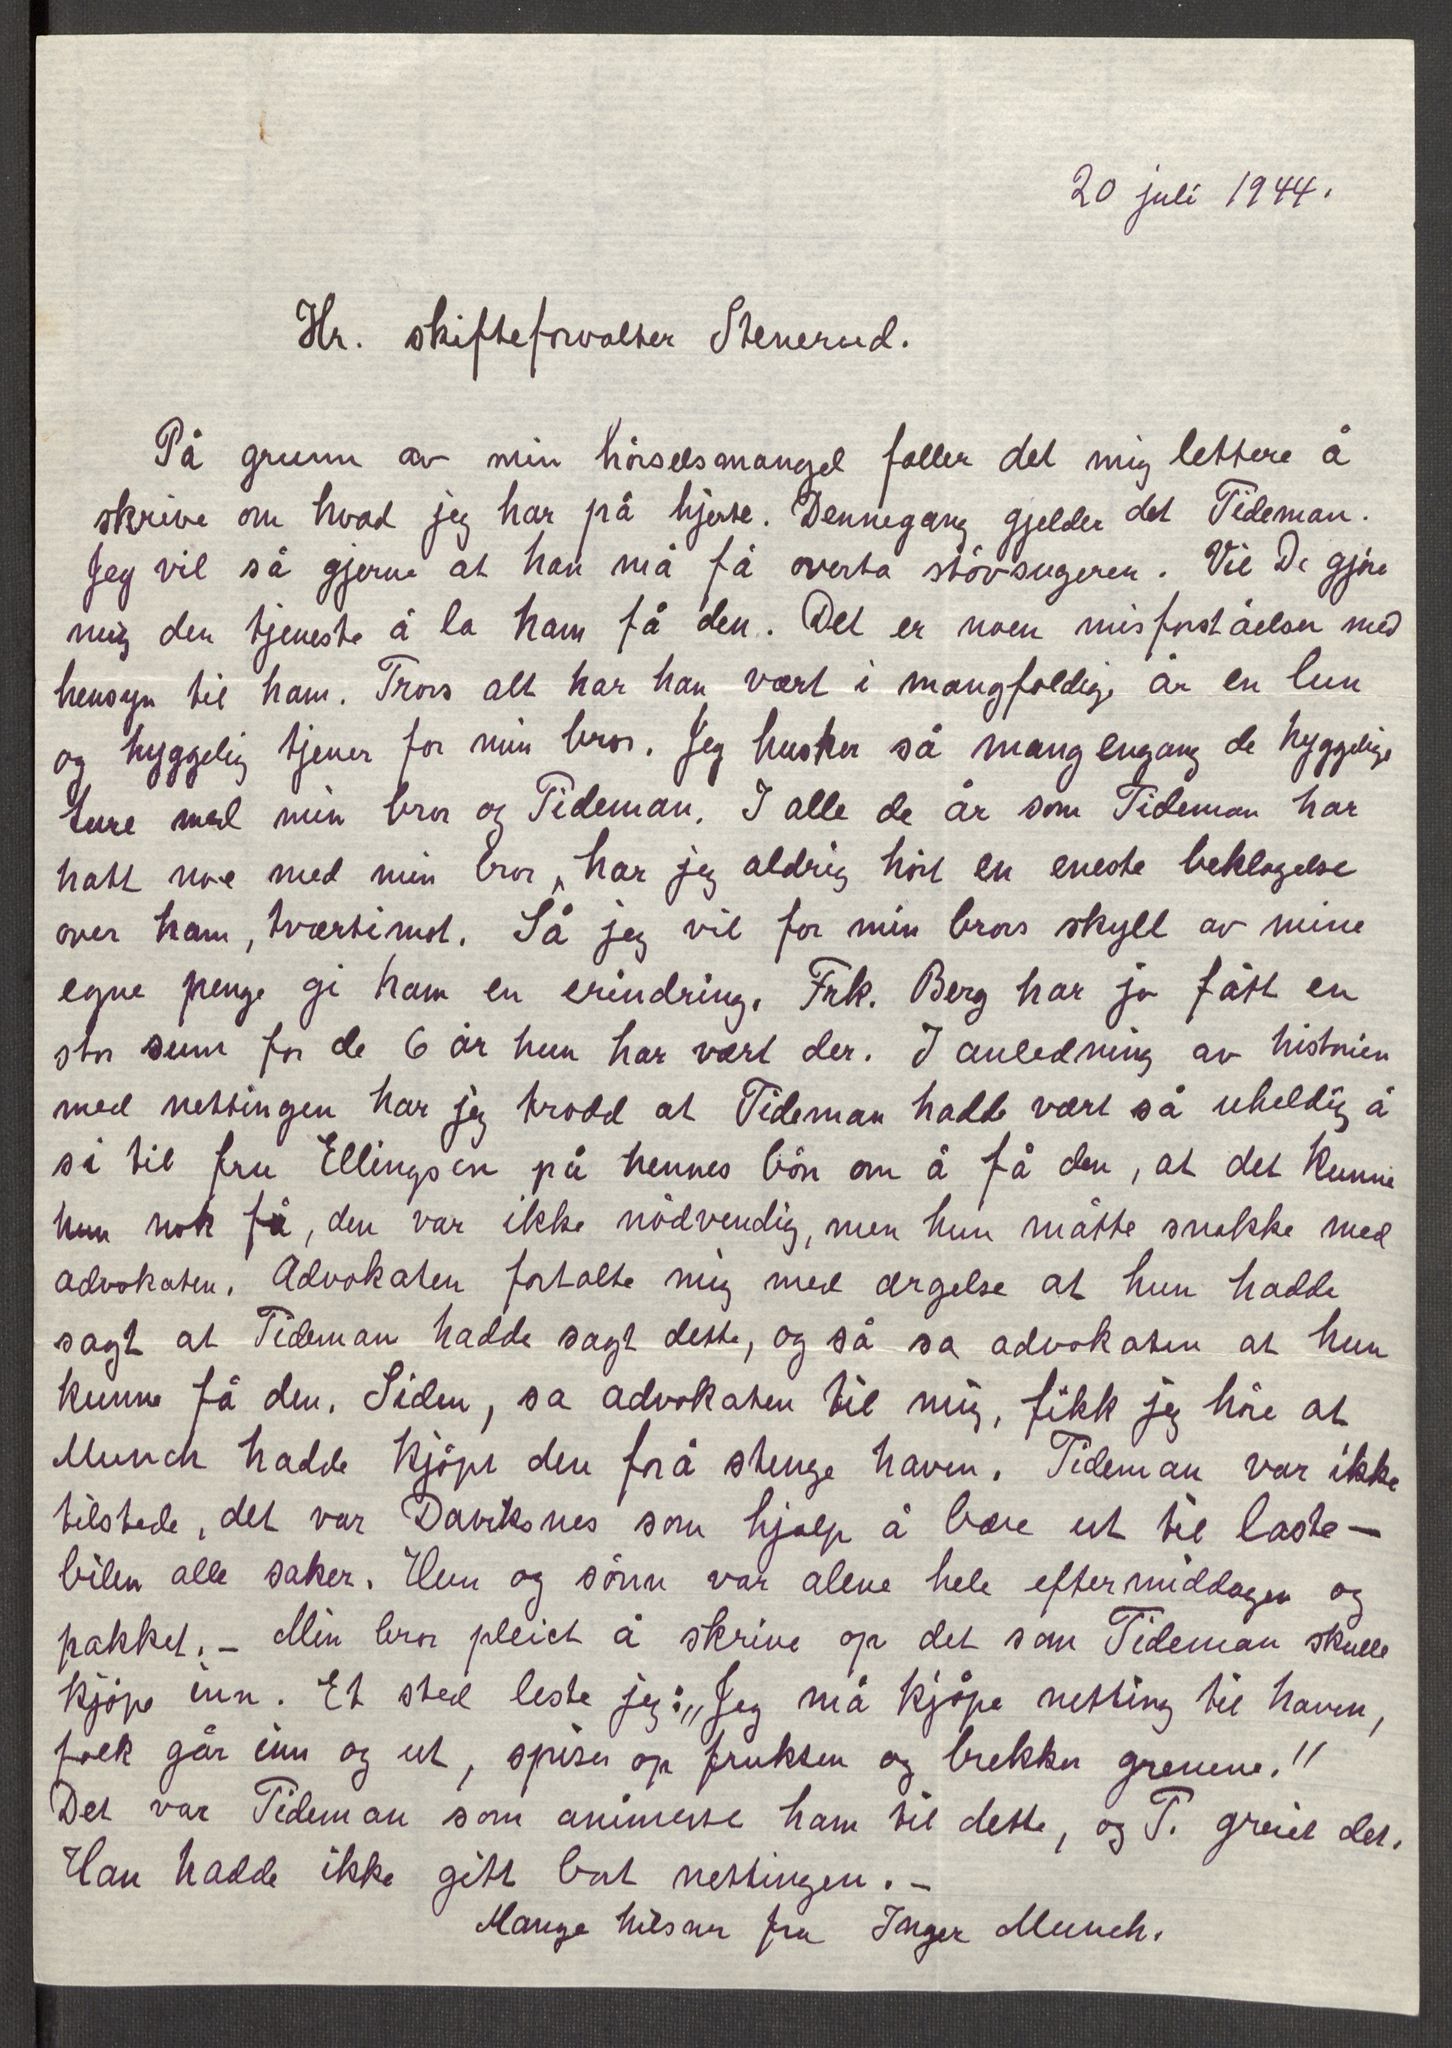 20 juli 1944.
Hr. skifteforvalter Stenerud.
På grunn av min hörselsmangel faller det mig lettere å
skrive om hvad jeg har på hjerte. Dennegang gjelder det Tideman.
Jeg vil så gjerne at han må få overta stövsugeren. Vil De gjöre
mig den tjeneste å la ham få den. Det er noen misforståelser med
hensyn til ham. Tross alt har han vært i mangfoldige år en lun
og hyggelig tjener for min bror. Jeg husker så mangengang de hyggelige
ture med min bror og Tideman. I alle de år som Tideman har
hatt noe med min bror, har jeg aldrig hört en eneste beklagelse
over ham, tværtimot. Så jeg vil for min brors skyll av mine
egne penge gi ham en erindring. Frk. Berg har jo fått en
stor sum for de 6 år hun har vært der. I anledning av historien
med nettingen har jeg trodd at Tideman hadde vært så uheldig å
si til fru Ellingsen på hennes bön om å få den, at det kunne
hun nok få, den var ikke nödvendig, men hun måtte snakke med
advokaten. Advokaten fortalte mig med ærgelse at hun hadde
sagt at Tideman hadde sagt dette, og så sa advokaten at hun
kunne få den. Siden, sa advokaten til mig, fikk jeg höre at
Munch hadde kjöpt den forå stenge haven. Tideman var ikke
tilstede, det var Daviksnes som hjalp å bære ut til laste-
bilen alle saker. Hun og sönn var alene hele eftermiddagen og
pakket. - Min bror pleiet å skrive op det som Tideman skulle
kjöpe inn. Et sted leste jeg: „Jeg må kjöpe netting til haven,
folk går inn og ut, spiser op frukten og brekker grenene."
Det var Tideman som animerte ham til dette, og T. greiet det.
Han hadde ikke gitt bort nettingen. -
Mange hilsner fra Inger Munch.